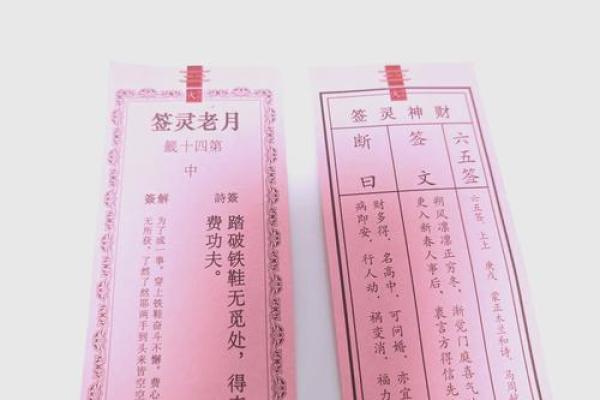 月老灵签
第四十籤
中
簽詩
踏破铁鞋无觅处，得
费功夫。
解簽
为了成一事，穿上铁鞋奋斗不懈。费心
无所获。了然了然耶两手到头来皆空空
财神灵签
六五签
签文
断曰
六五签，上上 庚戊 蒙正木兰和诗，马周
朔风凛凛正穷冬，渐觉门庭喜气
更入新春人事后，衷言方得信先
财多得，名高中，可问婚，亦宜
病即安，行人动，祸变消，福力